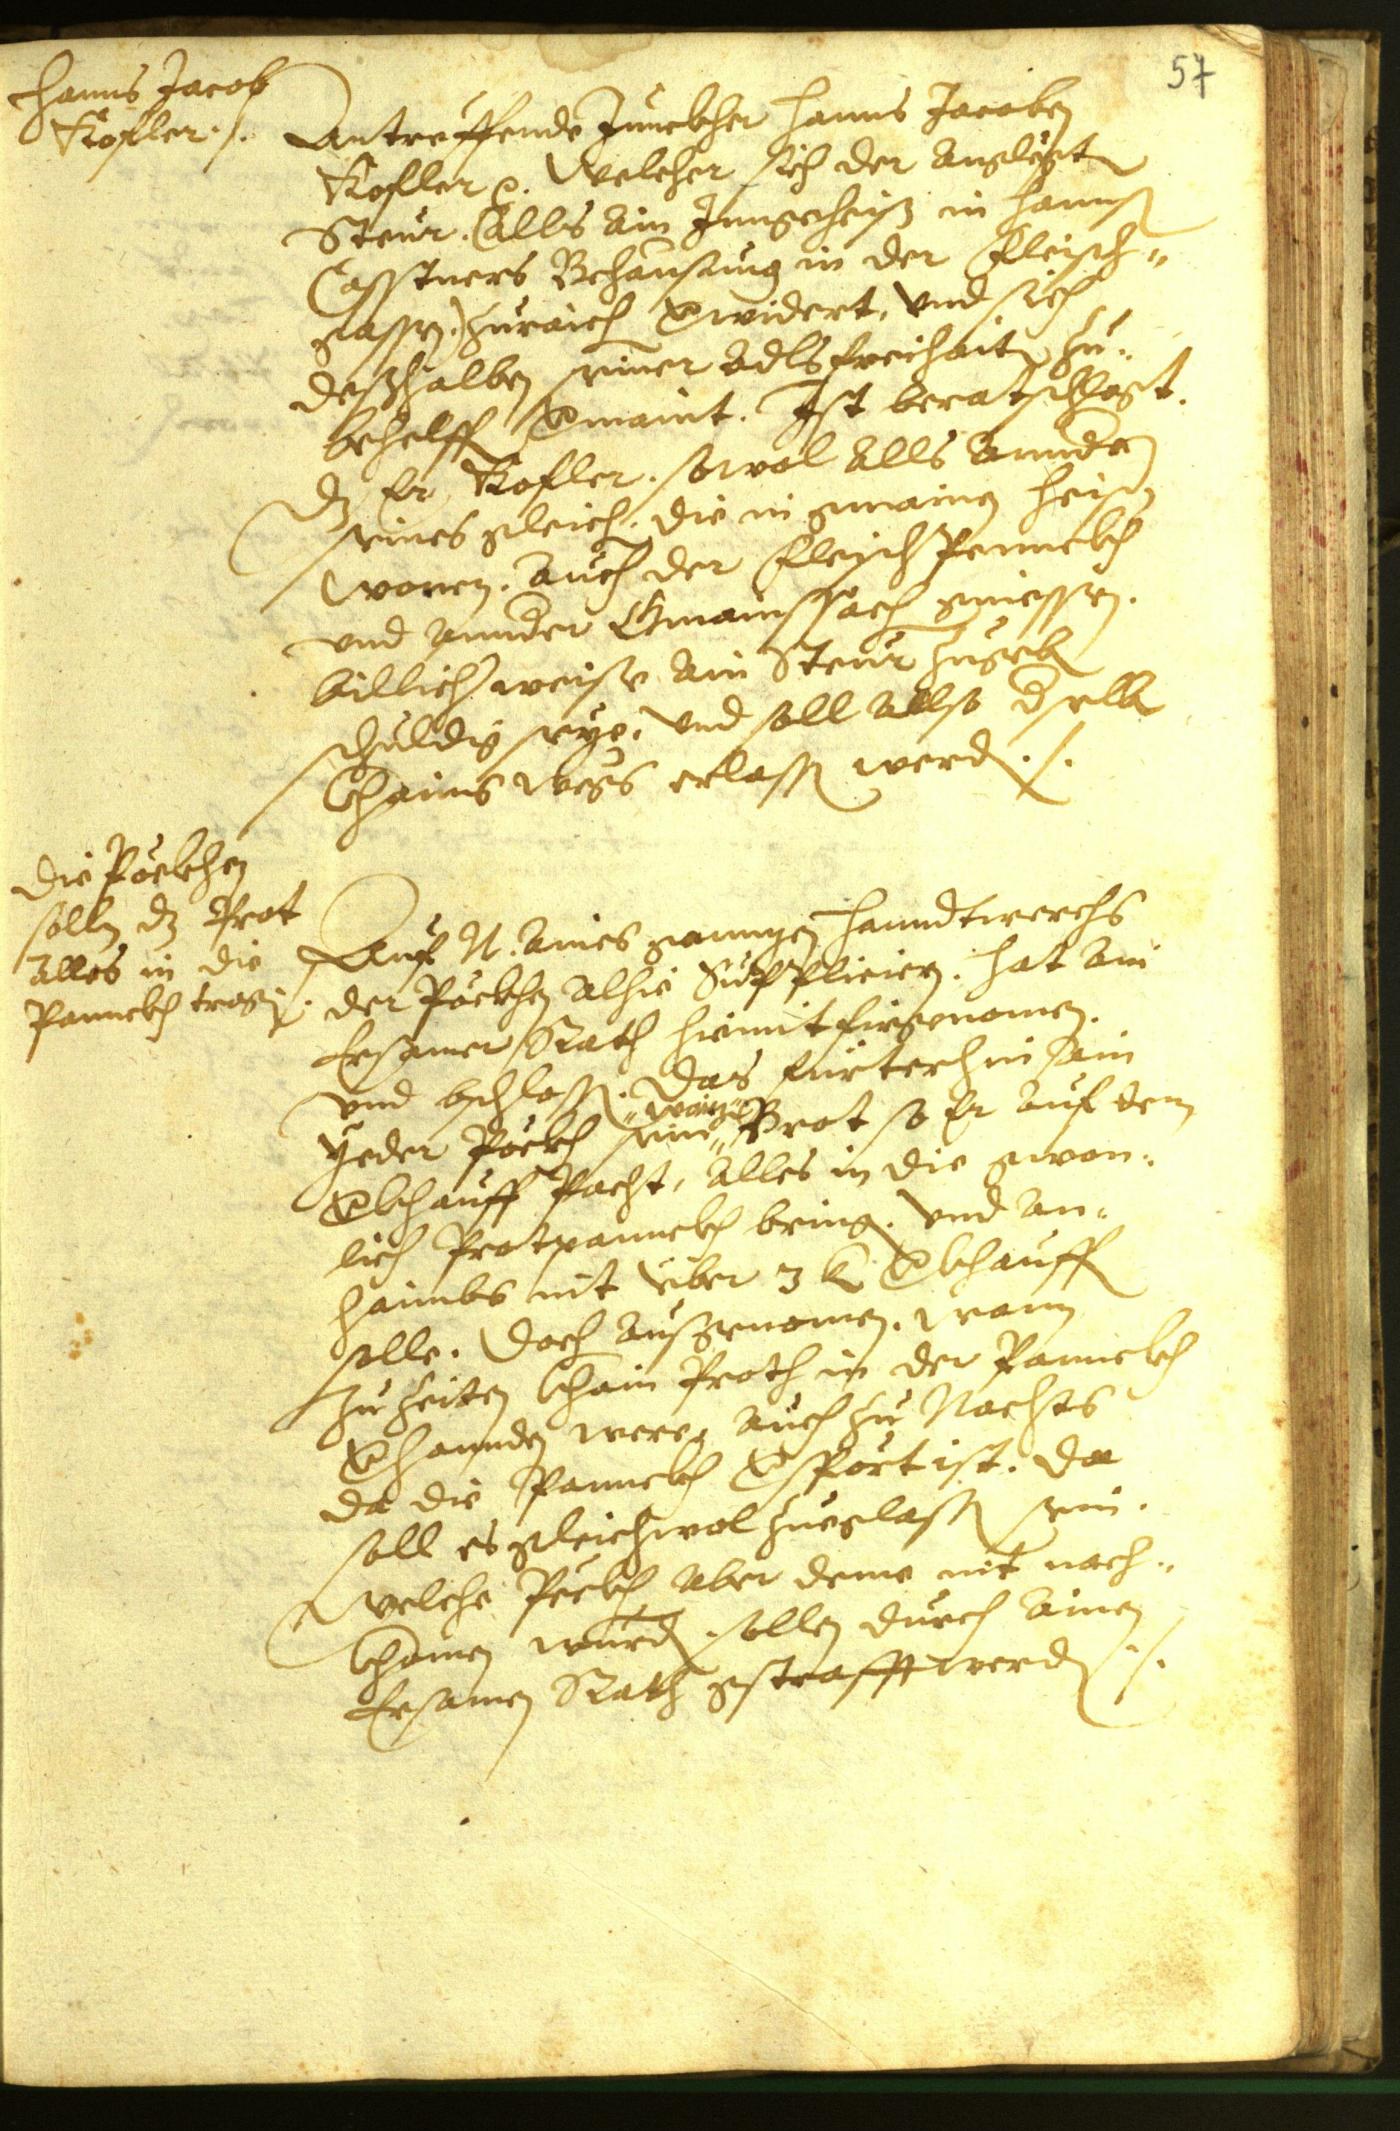 57
Hanns Jacob
Kofler ./.
Antreffende Junckher Hanns Jacoben
Kofler p. Welcher sich der angelegt
Steur. (Alls ain Inngeheiß in Hannß
Casstners Behausung in der Fleisch„
gassen.) zuraich verwidert, und sich
deßhalben seiner Adls freihait zu„
behelff vermaint. Ist beratschlagt.
Dz Er Kofler. sowol alls annder
seines gleich. die in gmainen heiß
wonen. auch der Fleisch Pennckh
und annder Gmainssach geniessen.
billich weise ain Steur zugeb
schuldig seye. Und soll allso dselb
khains wegs erlass werd ./.
Die Pöckhen
sollen dz Prot
alles in die
Pannckh tragen ./.
Auf N. aines ganngen Hanndtwerchs
der Pöckhen alhie Suppliciern. hat ain
Ersamer Rath hiemit fürgenomen.
und bschloss. Das fürterhin ain
„waiz„
Yeder Pöckh sein „ Prot so Er auf dem
verkhauff Pacht, alles in die gwon„
lich Protpannckh bring. und an„
haimbs nit über 3 k verkhauff
solle. Doch ausgenomen. wann
zu Zeiten khain Proth in der Pannckh
verhannden were, auch zu Nachts
da die Pannckh versport ist. Da
soll es gleichwol zuegelass sein.
Welche Peckh aber deme nit nach„
khomen wurd. sollen durch ainen
Ersamen Rath gestrafft werd ./.